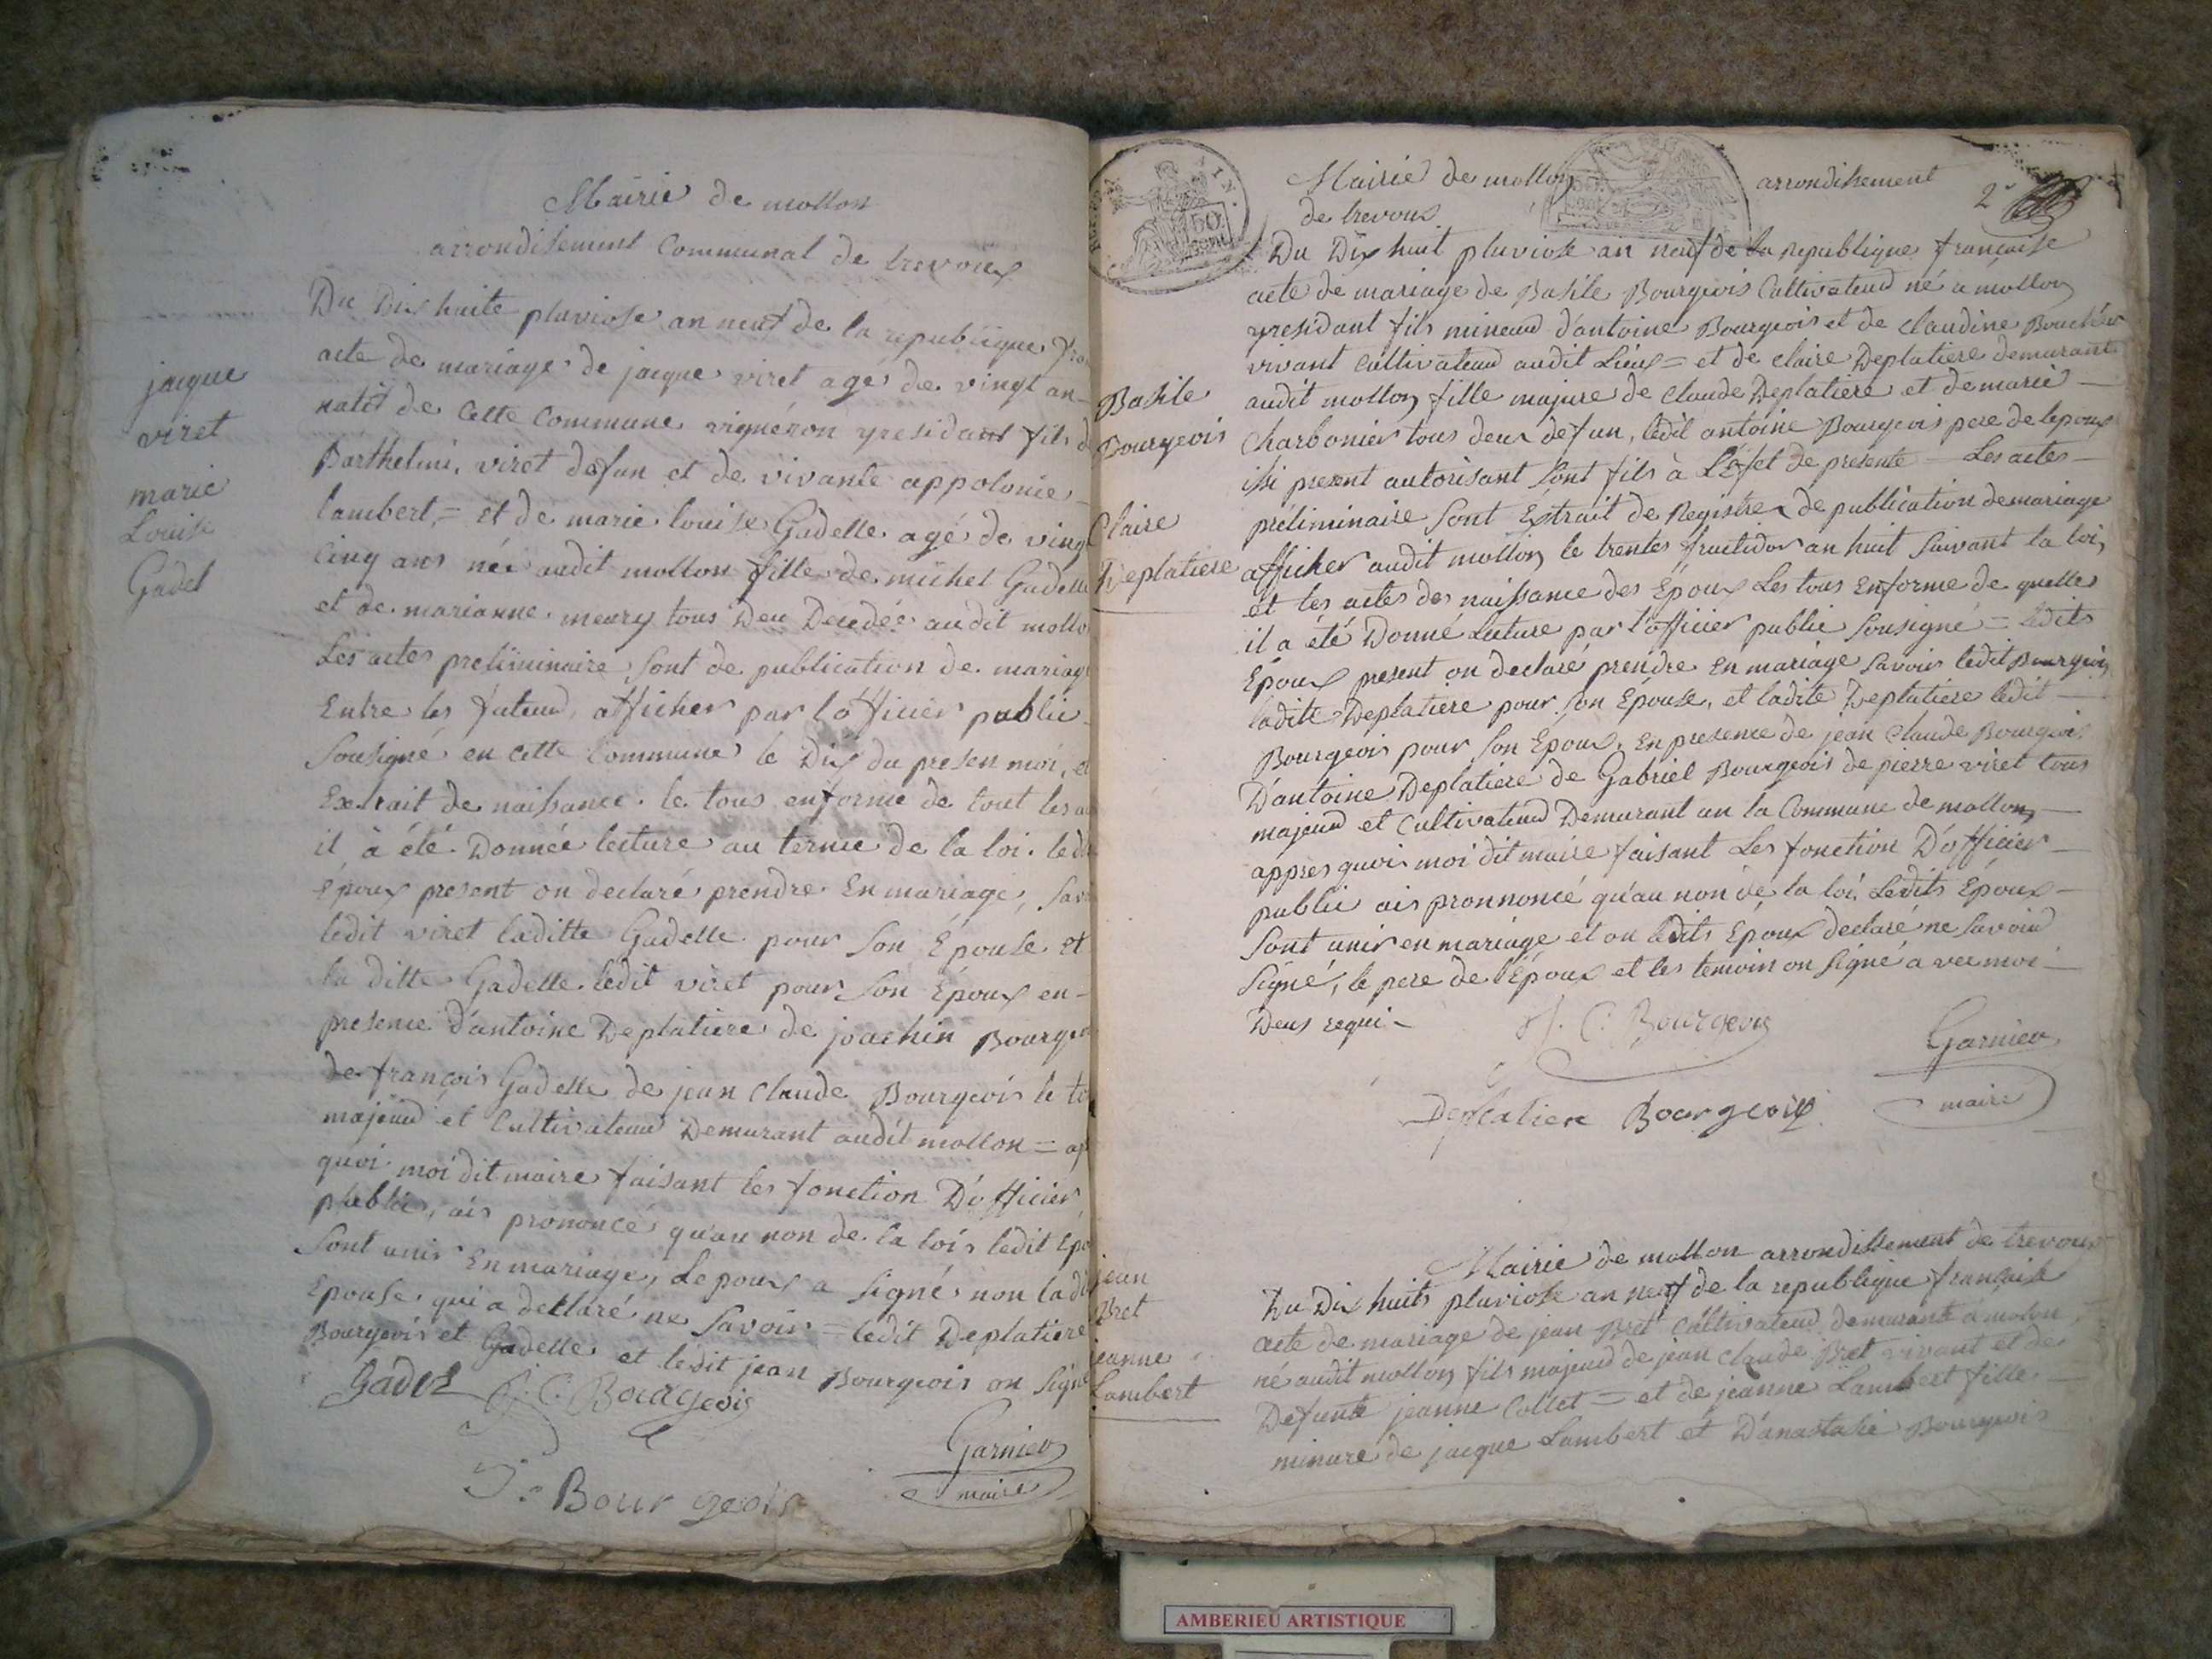 Mairie de mollon
arrondisement Communal de trevoux
Du Dix huite pluviose an neuf de la republique fra
acte de mariage de jacque viret agé de vingt an
natif de Cette Commune vignéron y residant fils d
Barthelmi viret defun et de vivante appolonie
lambert = et de marie louise Gadelle agé de ving
Cinq ans néé audit mollon fille de michel Gadelle
et de marianne meury tous Deu Decedée audit mollo
Les actes preliminaire Sont de publication de mariag
Entre les futeurs, afficher par l'officier public
Sousigné en cette Commune le Dix du presen moi, e
Extrait de naissance. le tous enforme de tout les a
il à été Donnée lecture au terme de la loi. led
Epoux present on declaré prendre En mariage, Sav
ledit viret laditte Gadelle pour Son Épouse Et
la ditte Gadelle ledit viret pour Son Époux en-
presence D'antoine Deplatiere de joachin Bourgeo
de françois Gadelle de jean Claude Bourgeois le to
majeurs et Cultivateurs Demurant audit mollon = ap
quoi moi dit maire faisant les fonction D'officier
public, ais prononcé qu'au non de la lois ledit Epo
Sont unis En mariage, Lepoux a Signé non ladi
Epouse qui a declaré ne Savoir = ledit Deplatiere
Bourgeois et Gadelle et ledit jean Bourgeois on Signé
Gadel J. C. Bourgeois
Garnier
maire
J. Bourgeois
jacque
viret
marie
Louise
Gadel
Mairie de mollon arrondissement
de trevoux
2e
Du Dix huit pluviose an neuf de la republique française
acte de mariage de Basile Bourgeois Cultivateur né a mollon
y residant fils mineur d'antoine Bourgeois et de claudine Bouchér
vivant Cultivateur audit Lieux = et de Claire Deplatiere demurant
audit mollon fille majure de Claude Deplatiere et de marie
Charbonier tous deux defun, ledit antoine Bourgeois pere de lepoux
issi present autorisant Sont fils à L'éfet de presente Les actes
preliminaire Sont Extrait de Registre de publication de mariage
afficher audit mollon le trentes fructidor an huit Suivant la loi,
et les actes des naissance des Époux Les tous Enforme de quelles
il a été Donné Lecture par l'officier public Sousigné = Ledits
Époux present on declaré prendre En mariage Savoir ledit Bourgeois
ladite Deplatiere pour Son Epouse, et ladite Deplatiere ledit
Bourgeois pour Son Epoux, En presence de jean Claude Bourgeois
D'antoine Deplatiere de Gabriel Bourgeois de pierre viret tous
majeurs et Cultivateurs Demurant en la Commune de mollon
appres quoi moi dit maire faisant Les fonction D'officier
public ais pronnoncé qu'au non de la loi Ledits Époux
Sont unir en mariage et on ledits Époux declaré ne Savoir
Signé, le pere de l'Époux et les temoin on Signé a vec moi
Deus requi
J. C. Bourgeois
Garnier
maire
Deplatiere Bourgeois
Basile
Bourgeois
Claire
Deplatiere
Mairie de mollon arrondissement de trevoux
Du Dix huits pluviose an neuf de la republique française
acte de mariage de jean Bret Cultivateur demurant a molon
né audit mollon fils majeur de jean Claude Bret vivant et de
Defunte jeanne Collet = et de jeanne Lambert fille
minure de jacque Lambert et D'anastasie Bourgeois
jean
Bret
jeanne
Lambert
AMBERIEU ARTISTIQUE